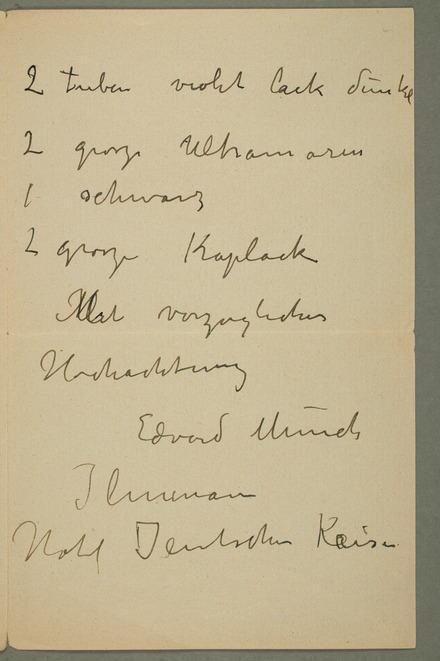 2 Tuben violet Lack dunkel
2 grosze Ultramarin
1 schwarz
2 grosze Kraplack
Mit vorzüglicher
Hochachtung
Edvard Munch
Ilmenau
Hotel Deutscher Kaiser